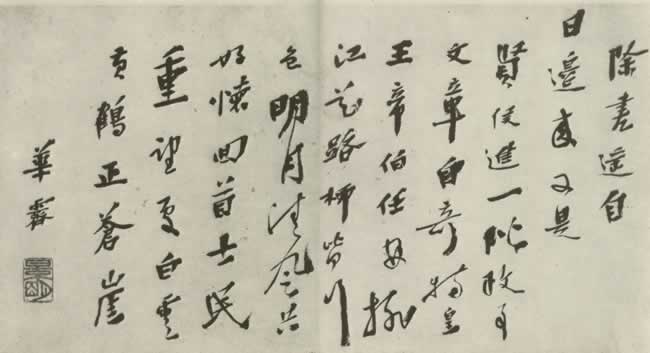 除書遙自
日邊來又是
賢侯進一階政事
文章自奇特皇
王帝伯任安排
江花路柳皆行
色明月清風共
好懷回首士民
重望處白雲
黃鶴正蒼崖
華